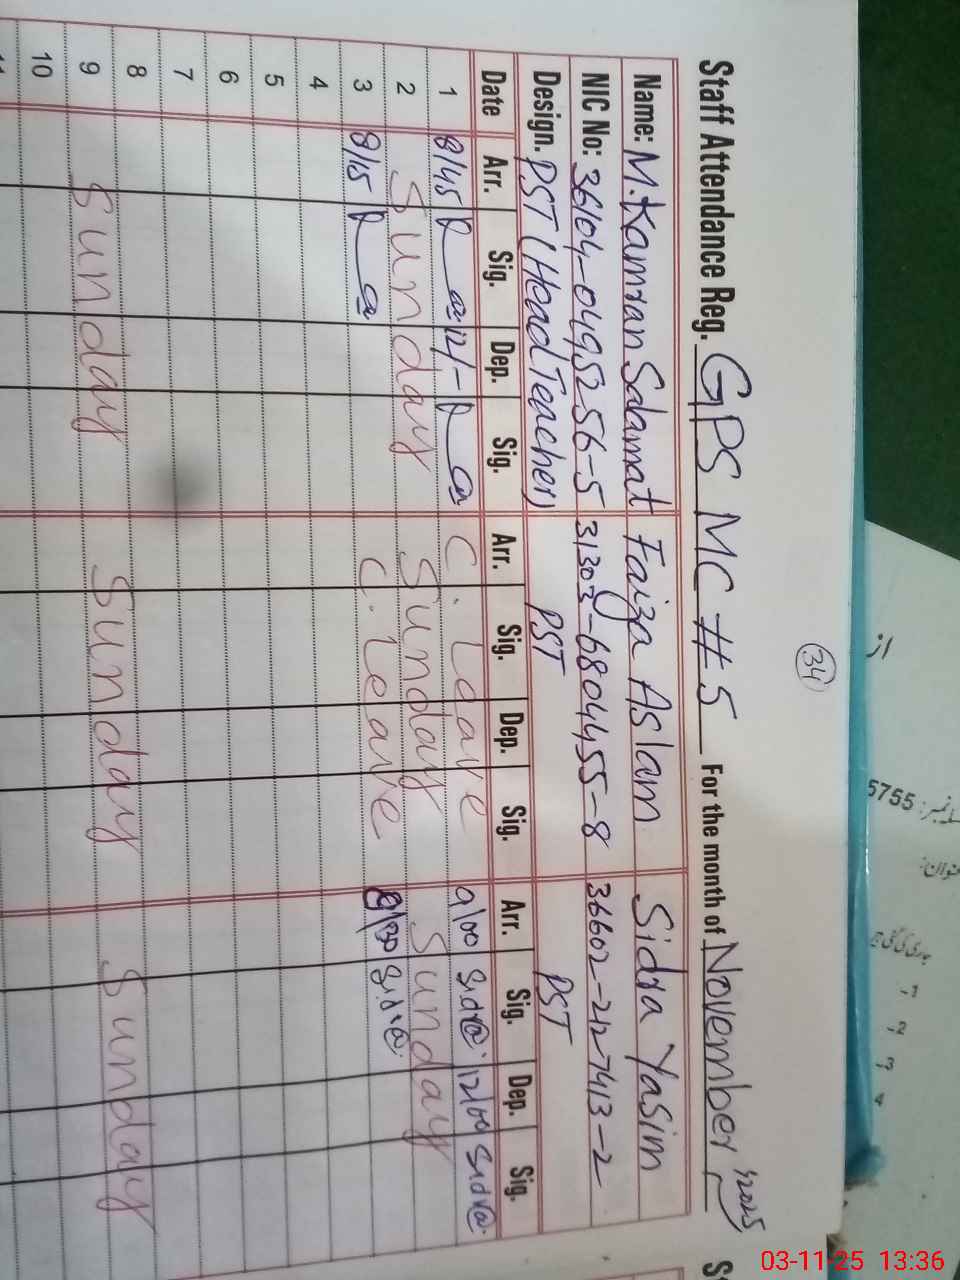 34
Staff Attendance Reg. GPS MC # 5 For the month of November, 2025
Name: M. Kamran Salamat Faiza Aslam Sidra Yasim
NIC No: 36104-0495256-5 31303-6804455-8 36602-2127413-2
Design. PST (Head Teacher) PST PST
Date Arr. Sig. Dep. Sig. Arr. Sig. Dep. Sig. Arr. Sig. Dep. Sig.
1 8/45 12/- C. Leave 9/00 Sidra 12/00 Sidra
2 Sunday Sunday Sunday
3 8/45 C. Leave 8/30 Sidra
4
5
6
7
8
9 Sunday Sunday Sunday
10
11
از
5755
عنوان:
-1
-2
-3
4
03-11-25 13:36